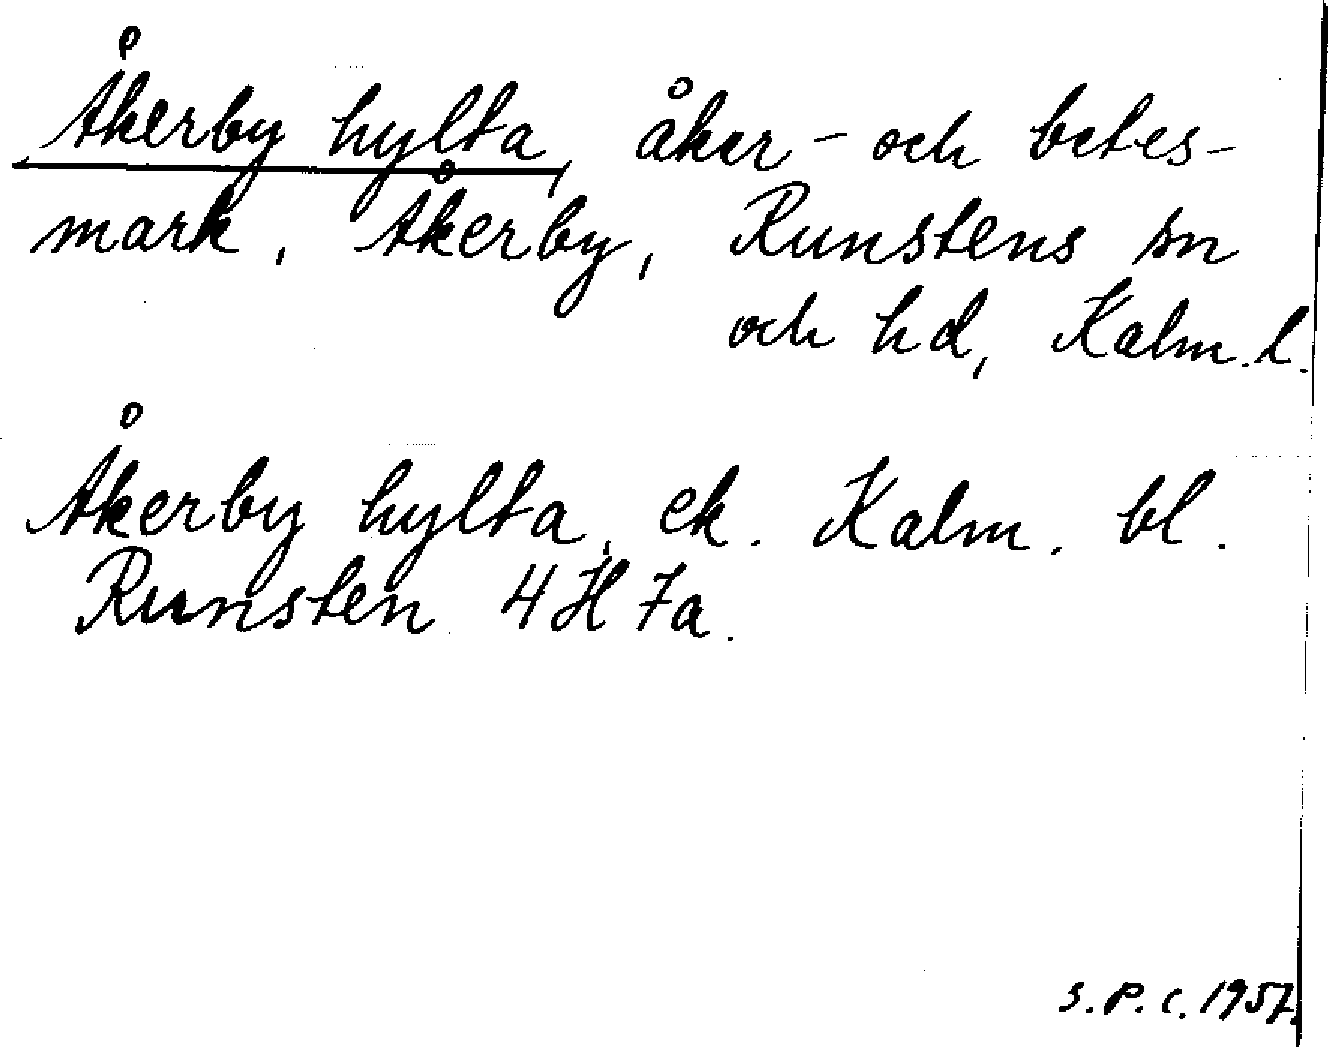 Åkerby hylta, åker- och betes-
mark, Åkerby, Runstens sn
och hd, Kalm. l.
Åkerby hylta, ek. Kalm. bl.
Runsten 4H7a.
S.P.C. 1957.